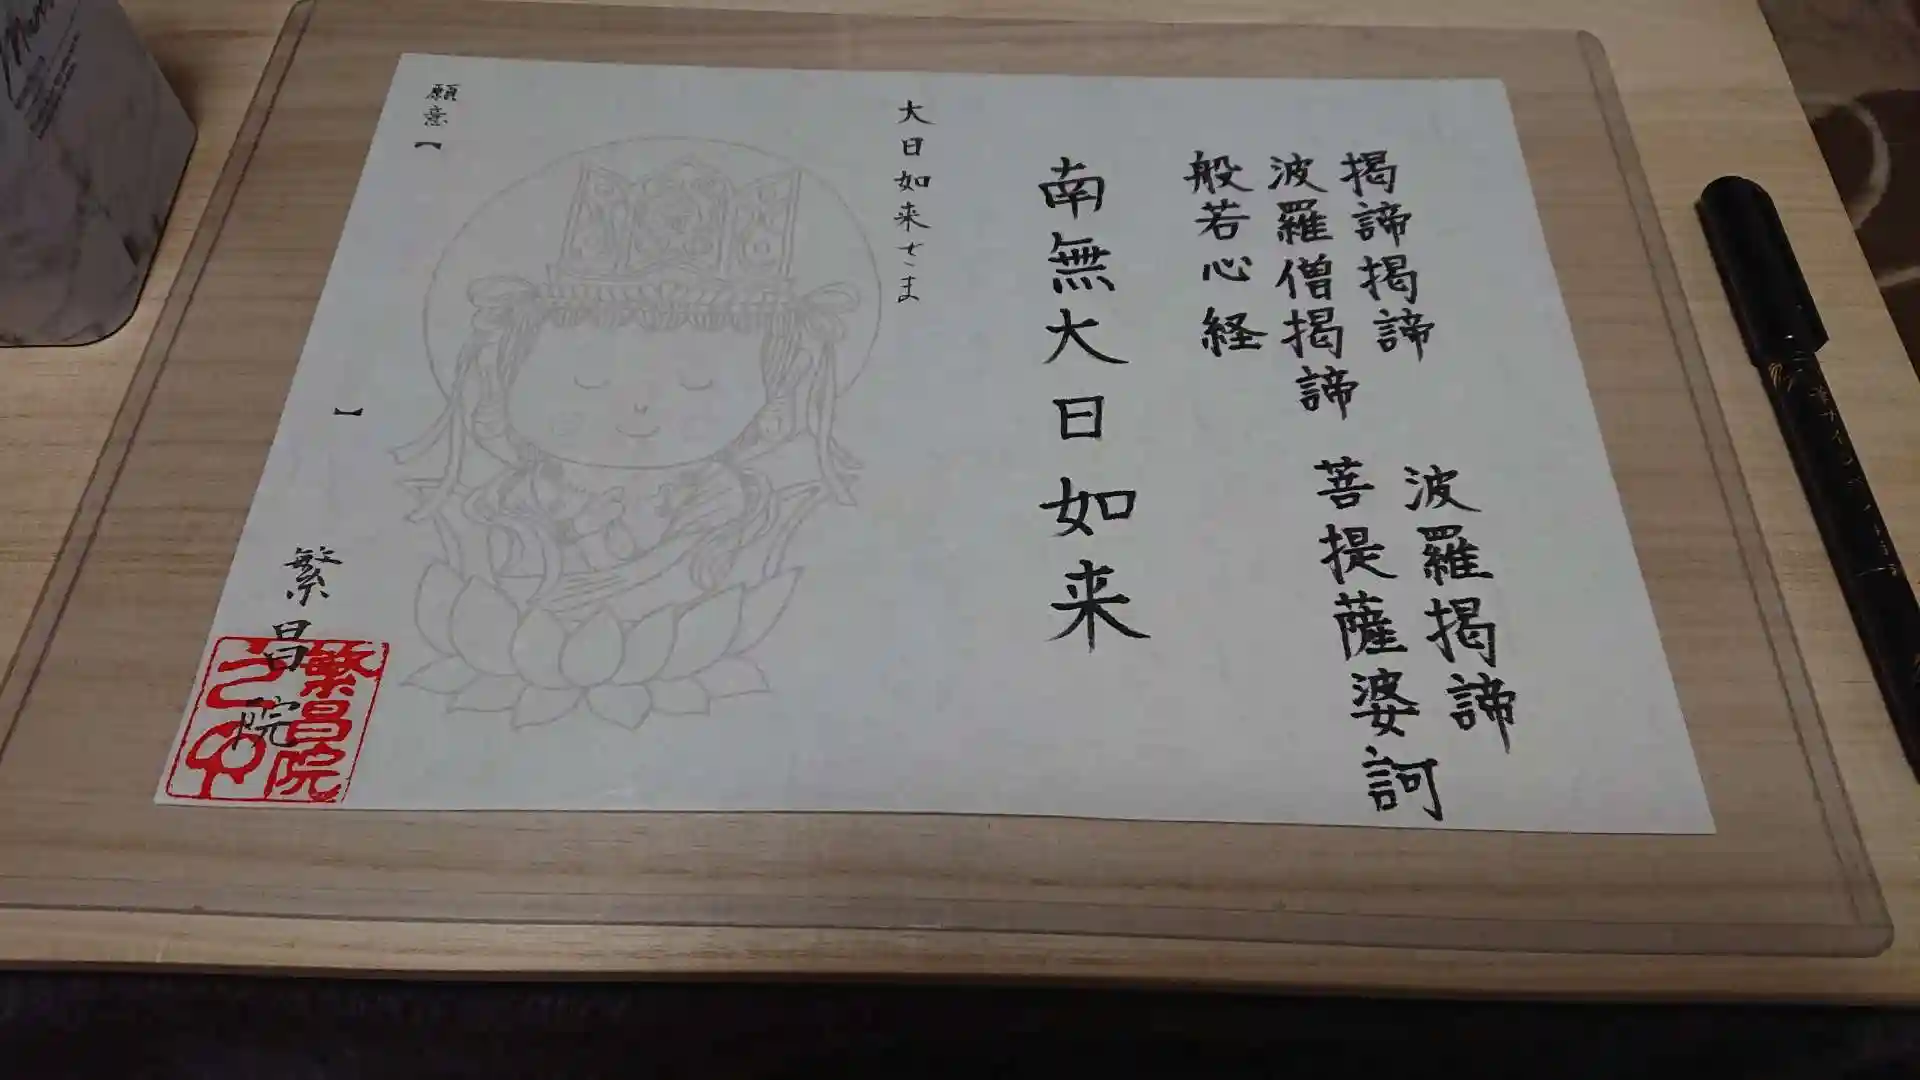 揭諦揭諦
波羅揭諦
波羅僧揭諦
菩提薩婆訶
般若心経
南無大日如来
大日如来さま
願意【
】
繁昌院
繁昌院